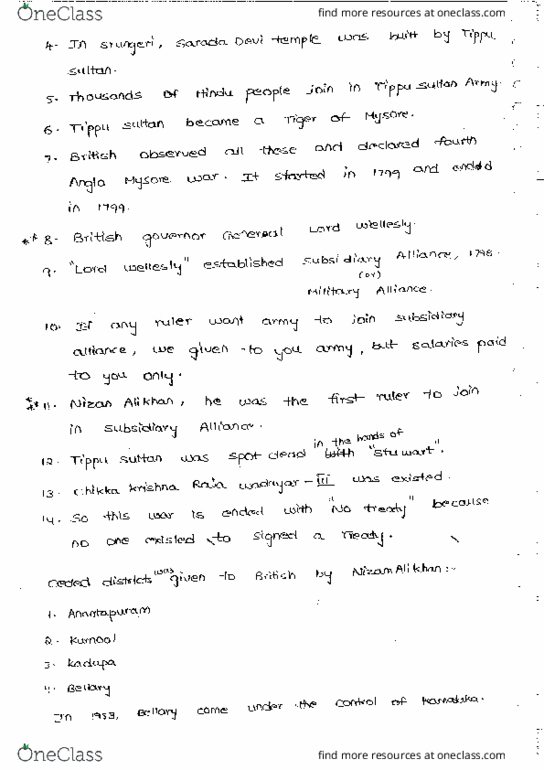 OneClass
find more resources at oneclass.com
4. In srungeri, Sarada Devi temple was built by Tippu
sultan.
5. Thousands of Hindu people join in Tippu sultan Army.
6. Tippu sultan became a Tiger of Mysore.
7. British observed all these and declared fourth
Anglo Mysore war. It started in 1799 and ended
in 1799.
** 8. British governor General Lord wellesly.
9. "Lord wellesly" established subsidiary Alliance, 1798.
(or)
Military Alliance.
10. If any ruler want army to join subsidiary
alliance, we given to you army, but salaries paid
to you only.
** 11. Nizam Alikhan, he was the first ruler to join
in subsidiary Alliance.
in the hands of
12. Tippu sultan was spot dead with "stuwart".
13. Chikka Krishna Raja wadiyar - III was existed.
14. So this war is ended with "No treaty" because
no one existed to signed a treaty.
ceded districts was given to British by Nizam Alikhan :-
1. Anantapuram
2. Kurnool
3. Kadapa
4. Bellary
In 1953, Bellary come under the control of Karnataka.
OneClass
find more resources at oneclass.com